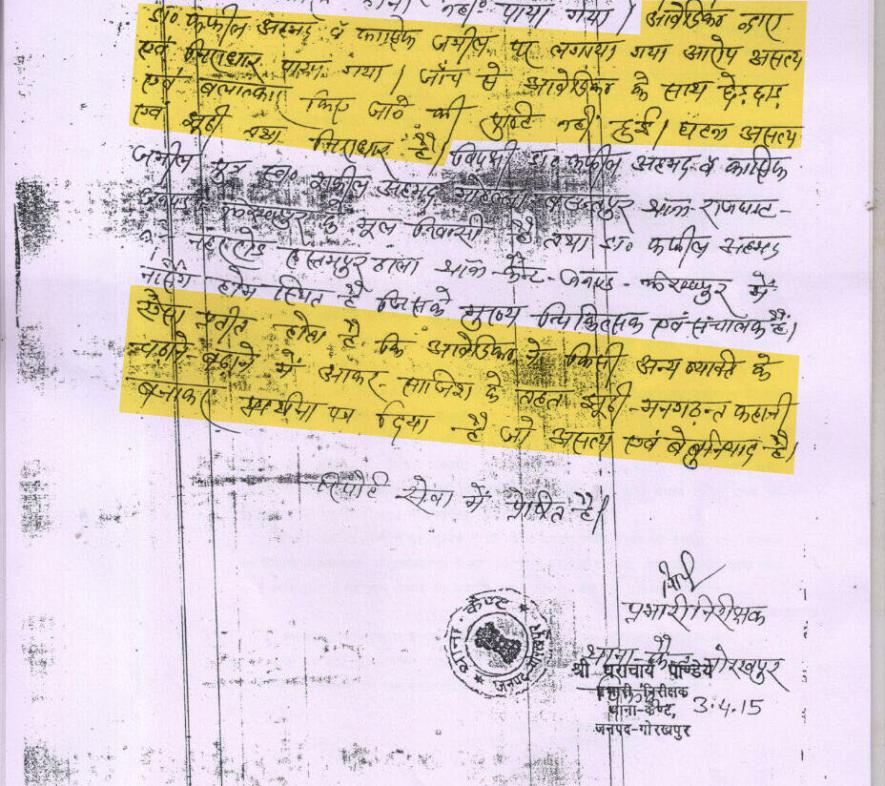 नहीं पाया गया। आवेदिका द्वारा
डा० कफील अहमद व काशिफ जमील पर लगाया गया आरोप असत्य
एवं निराधार पाया गया। जाँच से आवेदिका के साथ छेड़छाड़
एवं बलात्कार किए जाने की पुष्टि नहीं हुई। घटना असत्य
एवं झूठी तथा निराधार है। विपक्षी डा० कफील अहमद व काशिफ
जमील पुत्र स्व० शकील अहमद बसन्तपुर थाना-राजघाट-
जनपद-गोरखपुर के मूल निवासी हैं तथा डा० कफील अहमद
रुस्तमपुर ढाला थाना-कैण्ट-जनपद-गोरखपुर में
नर्सिंग होम स्थित है जिसके मुख्य चिकित्सक एवं संचालक हैं।
ऐसा प्रतीत होता है कि आवेदिका ने किसी अन्य व्यक्ति के
बहकाने में आकर साजिश के तहत झूठी-मनगढ़न्त कहानी
बनाकर प्रार्थना पत्र दिया है जो असत्य एवं बेबुनियाद है।
रिपोर्ट सेवा में प्रेषित है।
प्रभारी निरीक्षक
थाना-कैण्ट गोरखपुर
थाना कैण्ट
जनपद गोरखपुर
श्री धराचार्य पाण्डेय
प्रभारी निरीक्षक
थाना-कैण्ट,
3.4.15
जनपद-गोरखपुर